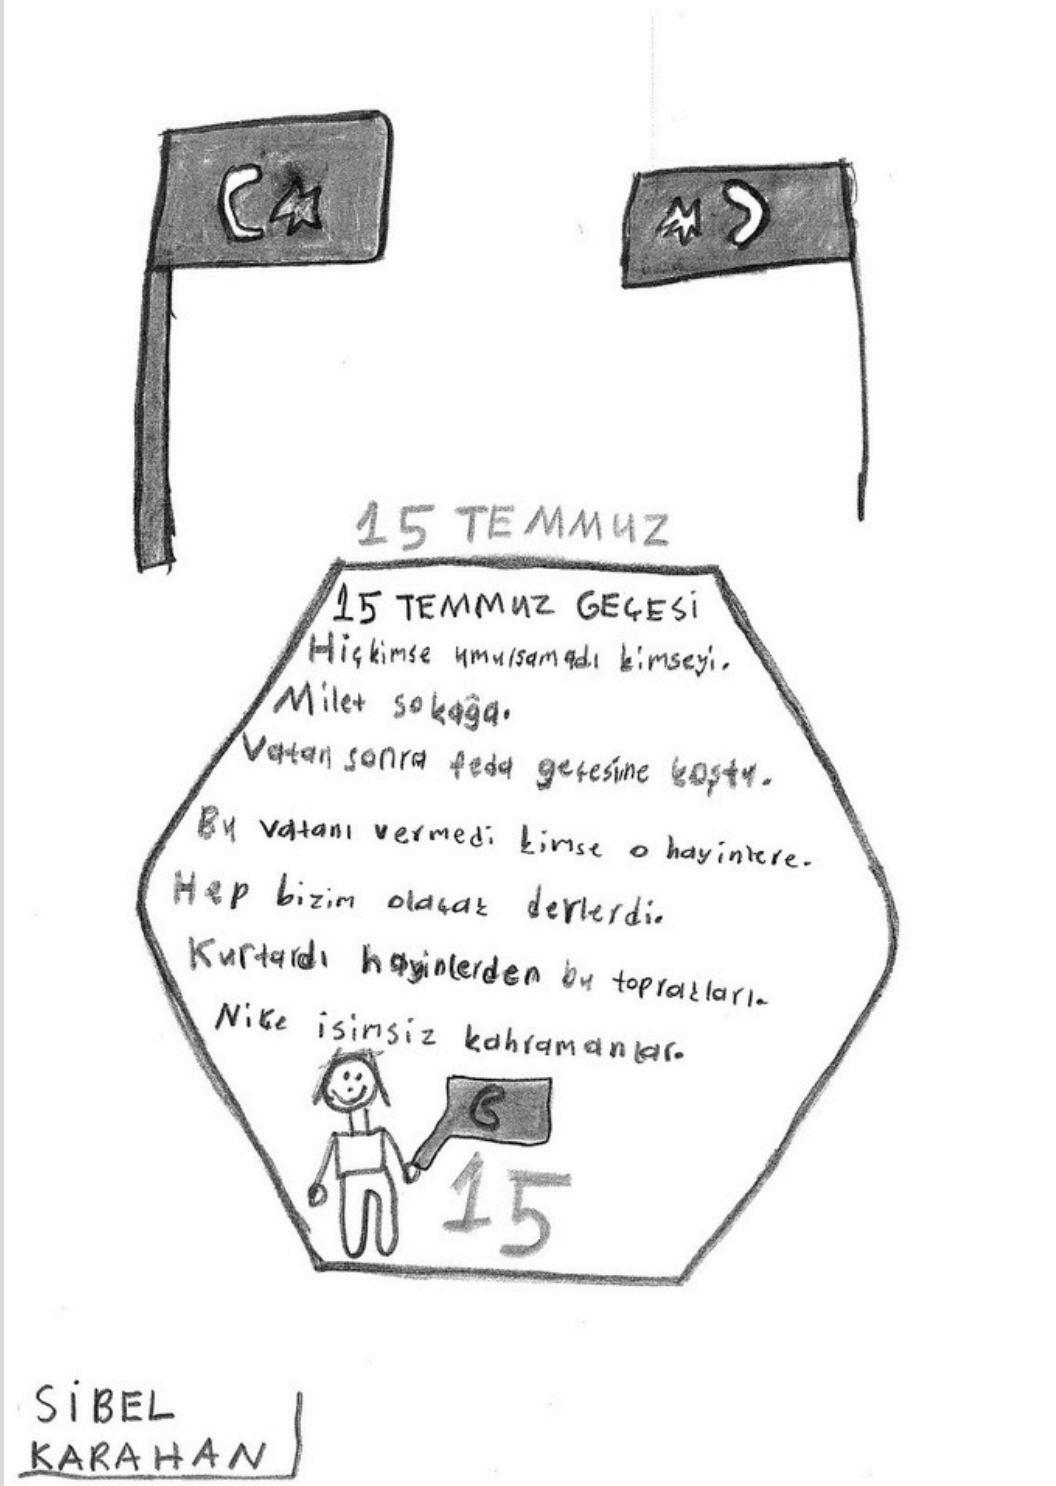 15 TEMMUZ
15 TEMMUZ GEÇESİ
Hiçkimse umursamadı kimseyi.
Milet sokağa.
Vatan sonra feda geçesine koştu.
Bu vatanı vermedi kimse o hayinlere.
Hep bizim olaçak derlerdi.
Kurtardı hayinlerden bu toprakları.
Niçe isimsiz kahramanlar.
15
SİBEL
KARAHAN